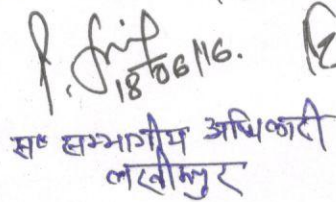 18/06/16.
स० सम्भागीय अधिकारी
लखीमपुर